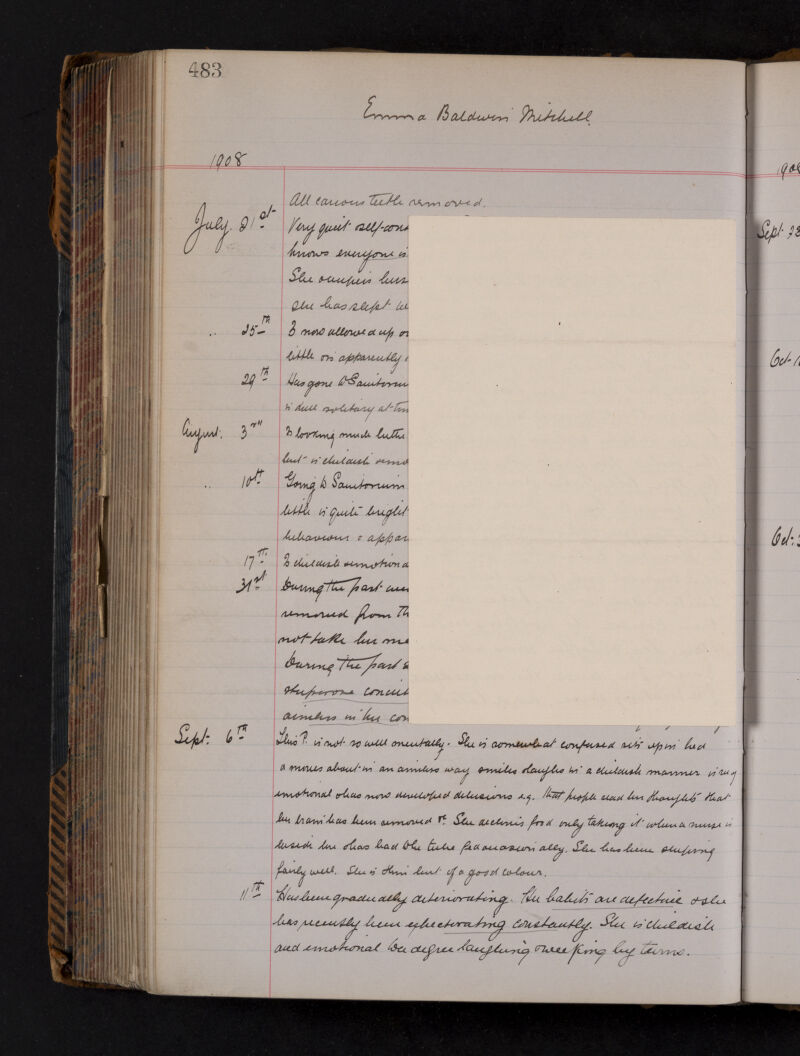 483
Emma Baldwin Mitchell.
1908
All carious teeth removed.
July. 21st Very quiet self-cont
knows everyone is
She occupies hers
she has slept we
.. 25th Is now allowed up or
little on apparently
29th Has gone to Sanitorium
is dull solitary at tim
August. 3rd Is looking much better
but is childish emo
.. 10th Going to Sanitorium
little is quite bright
behaviour & appar
17th Is childish emotiona
31st During the past
removed from th
not take her me
During the past
stuporose condit
aimless in her con
Sept: 6th This P. is not so well mentally. She is somewhat confused sits up in bed
& moves about in an aimless way smiles & laughs in a childish manner is very
emotional & has now developed delusions e.g. that people read her thoughts that
her brain has been removed &c. She declines food only taking it when a nurse is
beside her & has had to be tube fed occasionally. She has been sleeping
fairly well. She is thin but of a good colour.
11th Has been gradually deteriorating. Her habits are defective & she
has recently been expectorating constantly. She is childish
and emotional to a degree laughing & weeping by turns.
190
Sept. 22
Oct. 1
Oct: 3